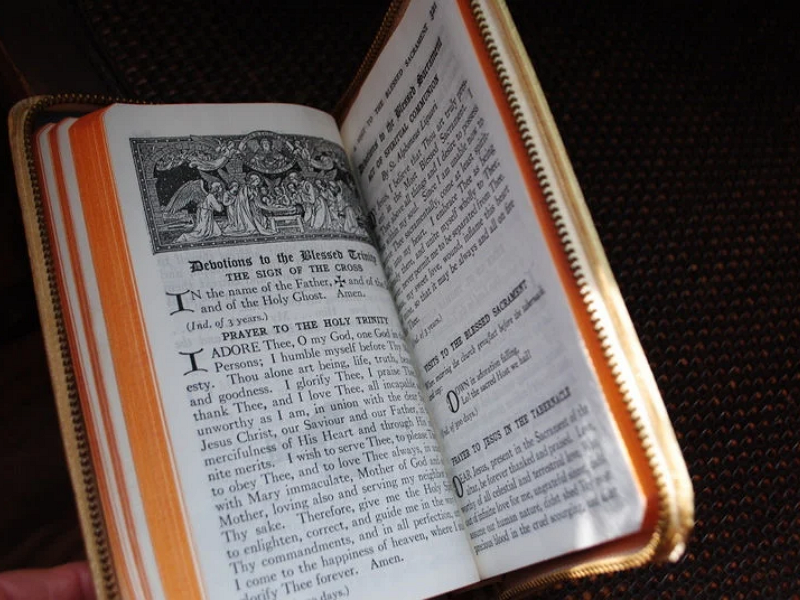 Devotions to the Blessed Trinity
THE SIGN OF THE CROSS
IN the name of the Father, ✠ and of the
and of the Holy Ghost. Amen.
(Ind. of 3 years.)
PRAYER TO THE HOLY TRINITY
I ADORE Thee, O my God, one God in
Persons; I humble myself before Thy
esty. Thou alone art being, life, truth,
and goodness. I glorify Thee, I praise Thee
thank Thee, and I love Thee, all incapable
unworthy as I am, in union with the dear
Jesus Christ, our Saviour and our Father,
mercifulness of His Heart and through His
nite merits. I wish to serve Thee, to please
to obey Thee, and to love Thee always, in
with Mary immaculate, Mother of God and
Mother, loving also and serving my neighbor
Thy sake. Therefore, give me the Holy
to enlighten, correct, and guide me in the
Thy commandments, and in all perfection,
I come to the happiness of heaven, where
glorify Thee forever. Amen.
days.)
TO THE BLESSED SACRAMENT
to the Blessed Sacrament
OF SPIRITUAL COMMUNION
By St. Alphonsus Liguori
I believe that Thou art truly
in the Most Blessed Sacrament. I
above all things and I desire to possess
my soul. Since I am unable now to
Thee sacramentally, come at least spirit-
into my heart. I embrace Thee as being
there, and unite myself wholly to Thee;
never permit me to be separated from Thee.
my sweet love, wound, inflame this heart
that it may be always and all on fire
Thee.
of 3 years.)
VISITS TO THE BLESSED SACRAMENT
When entering the church prostrate before the tabernacle
and say:
DOWN in adoration falling,
Lo! the sacred Host we hail!
of 300 days.)
PRAYER TO JESUS IN THE TABERNACLE
DEAR Jesus, present in the Sacrament of the
altar, be forever thanked and praised. Love,
worthy of all celestial and terrestrial love,
out of infinite love for me, ungrateful sinner, didst
assume our human nature, didst shed Thy
precious blood in the cruel scourging, and